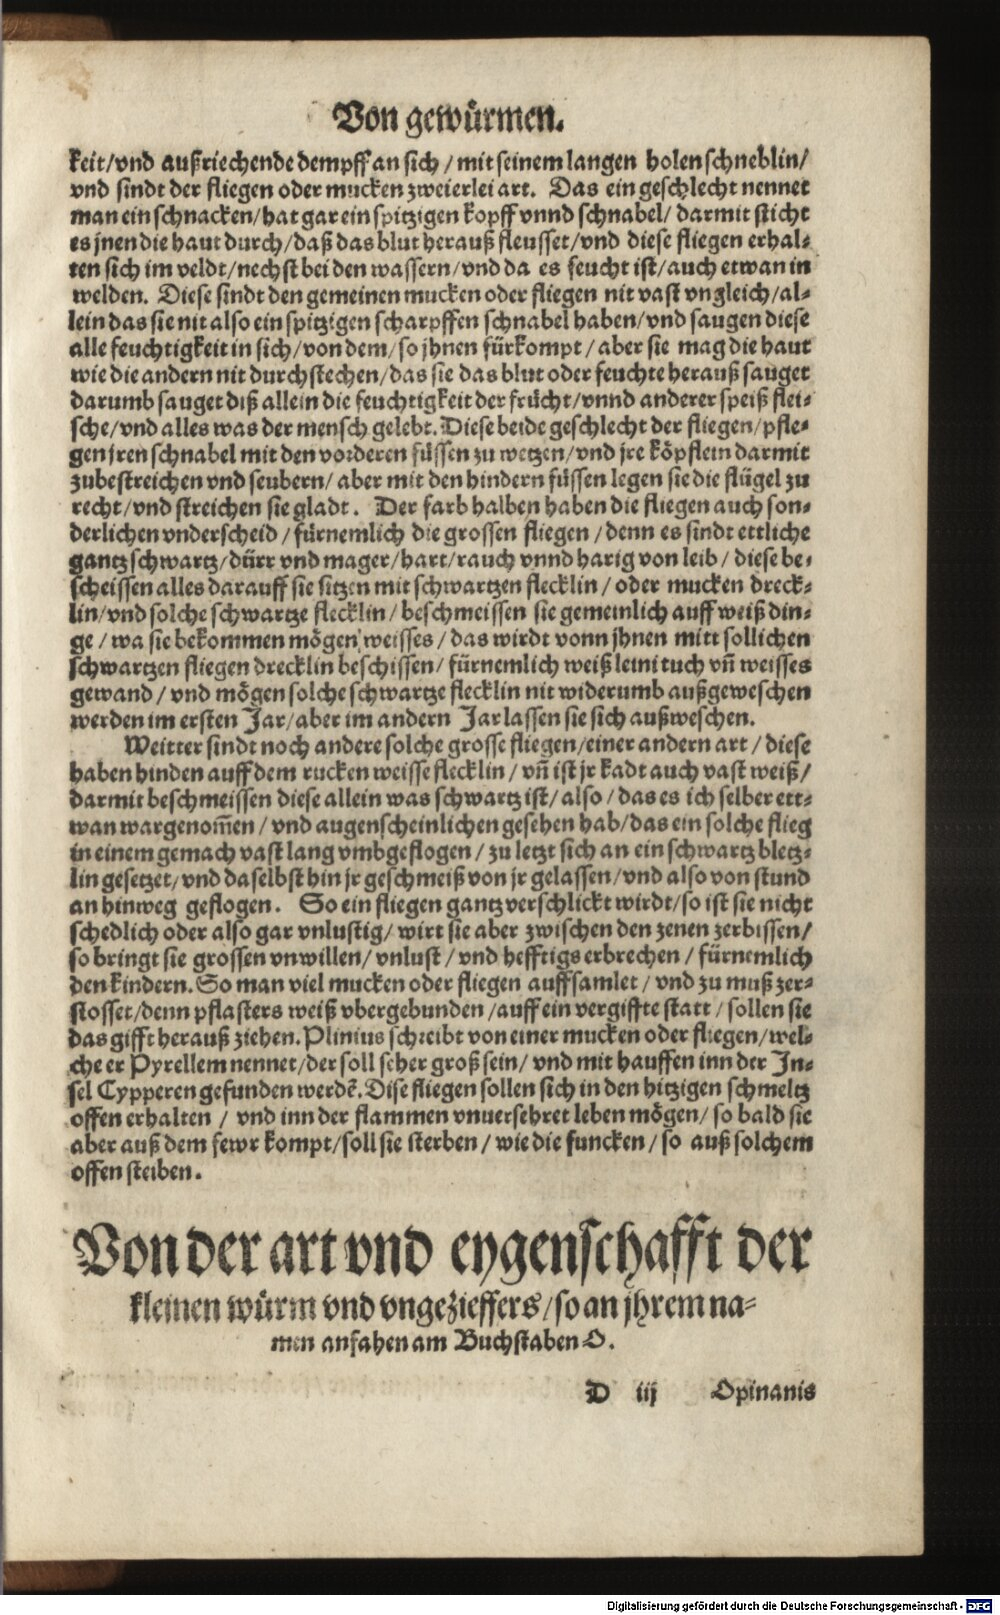 Von gewürmen.
keit/vnd außriechende dempff an sich / mit seinem langen holen schneblin/
vnd sindt der fliegen oder mucken zweierlei art. Das ein geschlecht nennet
man ein schnacken/hat gar ein spitzigen kopff vnnd schnabel/ darmit sticht
es jnen die haut durch/daß das blut herauß fleusset/vnd diese fliegen erhal-
ten sich im veldt/nechst bei den wassern/vnd da es feucht ist/auch etwan in
welden. Diese sindt den gemeinen mucken oder fliegen nit vast vngleich/al-
lein das sie nit also ein spitzigen scharpffen schnabel haben/vnd saugen diese
alle feuchtigkeit in sich/von dem/so jhnen fürkompt/aber sie mag die haut
wie die andern nit durchstechen/das sie das blut oder feuchte herauß sauget
darumb sauget diß allein die feuchtigkeit der frücht/vnnd anderer speiß flei-
sche/vnd alles was der mensch gelebt. Diese beide geschlecht der fliegen/pfle-
gen jren schnabel mit den vorderen füssen zu wetzen/vnd jre köpflein darmit
zubestreichen vnd seubern/aber mit den hindern füssen legen sie die flügel zu
recht/vnd streichen sie gladt. Der farb halben haben die fliegen auch son-
derlichen vnderscheid / fürnemlich die grossen fliegen / denn es sindt ettliche
gantz schwartz/dürr vnd mager/hart/rauch vnnd harig von leib / diese be-
scheissen alles darauff sie sitzen mit schwartzen flecklin / oder mucken dreck-
lin/vnd solche schwartze flecklin / beschmeissen sie gemeinlich auff weiß din-
ge / wa sie bekommen mögen weisses / das wirdt vonn jhnen mitt sollichen
schwartzen fliegen drecklin beschissen/ fürnemlich weiß leini tuch vñ weisses
gewand / vnd mögen solche schwartze flecklin nit widerumb außgeweschen
werden im ersten Jar/aber im andern Jar lassen sie sich außweschen.
Weitter sindt noch andere solche grosse fliegen/einer andern art / diese
haben hinden auff dem rucken weisse flecklin / vñ ist jr kadt auch vast weiß/
darmit beschmeissen diese allein was schwartz ist/also / das es ich selber ett-
wan wargenom̃en / vnd augenscheinlichen gesehen hab/das ein solche flieg
in einem gemach vast lang vmbgeflogen / zu letzt sich an ein schwartz bletz-
lin gesetzet/vnd daselbst hin jr geschmeiß von jr gelassen/vnd also von stund
an hinweg geflogen. So ein fliegen gantz verschlickt wirdt/so ist sie nicht
schedlich oder also gar vnlustig/ wirt sie aber zwischen den zenen zerbissen/
so bringt sie grossen vnwillen/ vnlust / vnd hefftigs erbrechen / fürnemlich
den kindern. So man viel mucken oder fliegen auffsamlet / vnd zu muß zer-
stosset/denn pflasters weiß vbergebunden /auff ein vergiffte statt / sollen sie
das gifft herauß ziehen. Plinius schreibt von einer mucken oder fliegen/wel-
che er Pyrellem nennet/der soll seher groß sein/ vnd mit hauffen inn der In-
sel Cypperen gefunden werdẽ. Dise fliegen sollen sich in den hitzigen schmeltz
offen erhalten / vnd inn der flammen vnuersehret leben mögen/ so bald sie
aber auß dem fewr kompt/soll sie sterben / wie die funcken / so auß solchem
offen steiben.
Von der art vnd eygenschafft der
kleinen würm vnd vngezieffers/so an jhrem na-
men anfahen am Buchstaben O.
D iij Opinanis
Digitalisierung gefördert durch die Deutsche Forschungsgemeinschaft - DFG